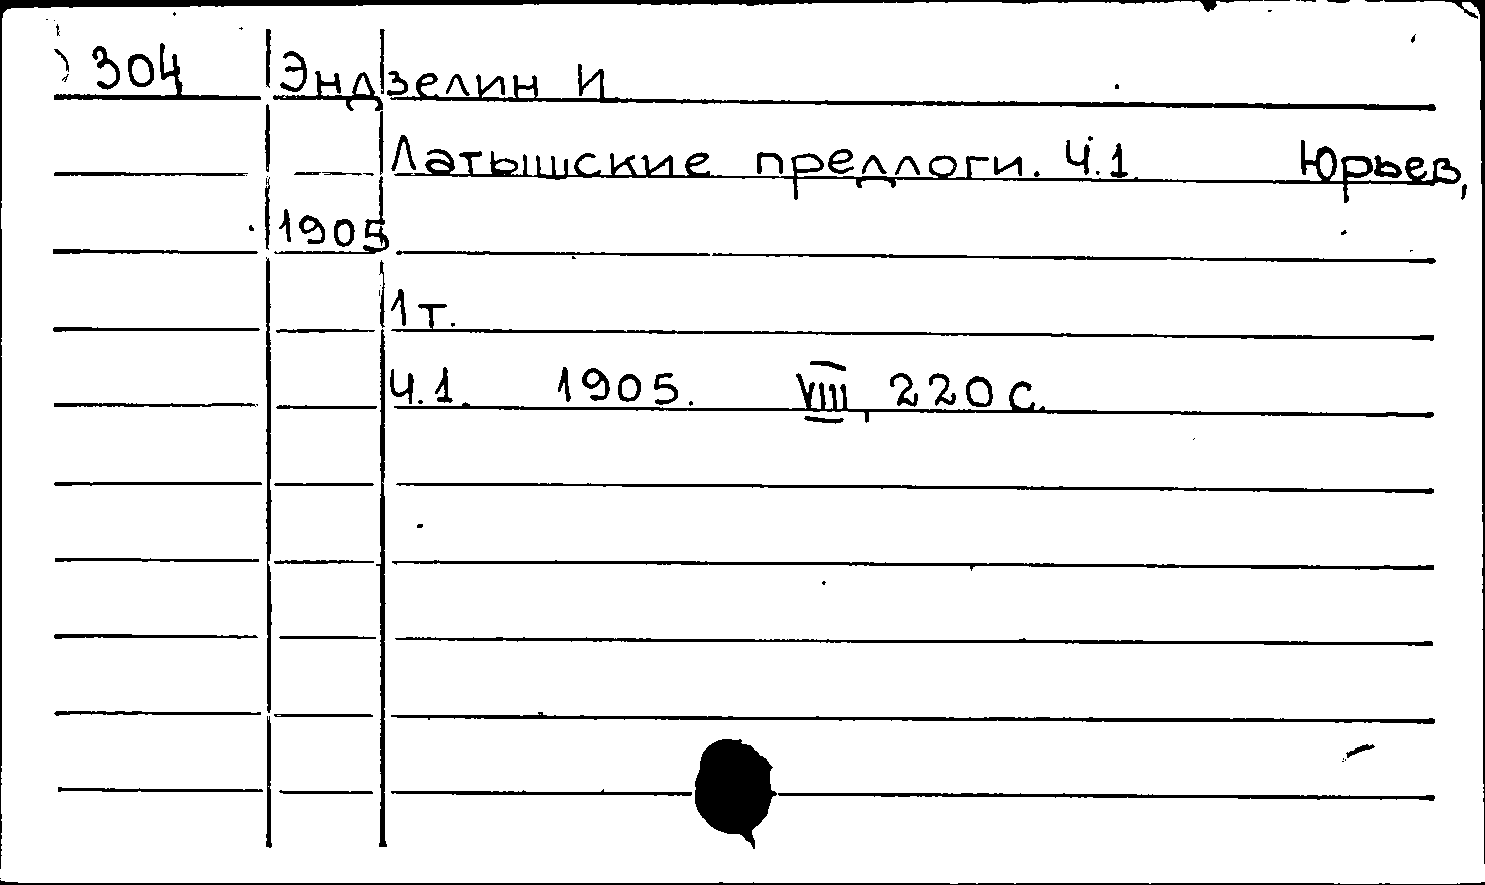 304 Эндзелин И
Латышские предлоги. Ч.1 Юрьев,
1905
1 т.
Ч.1. 1905. VIII, 220 с.